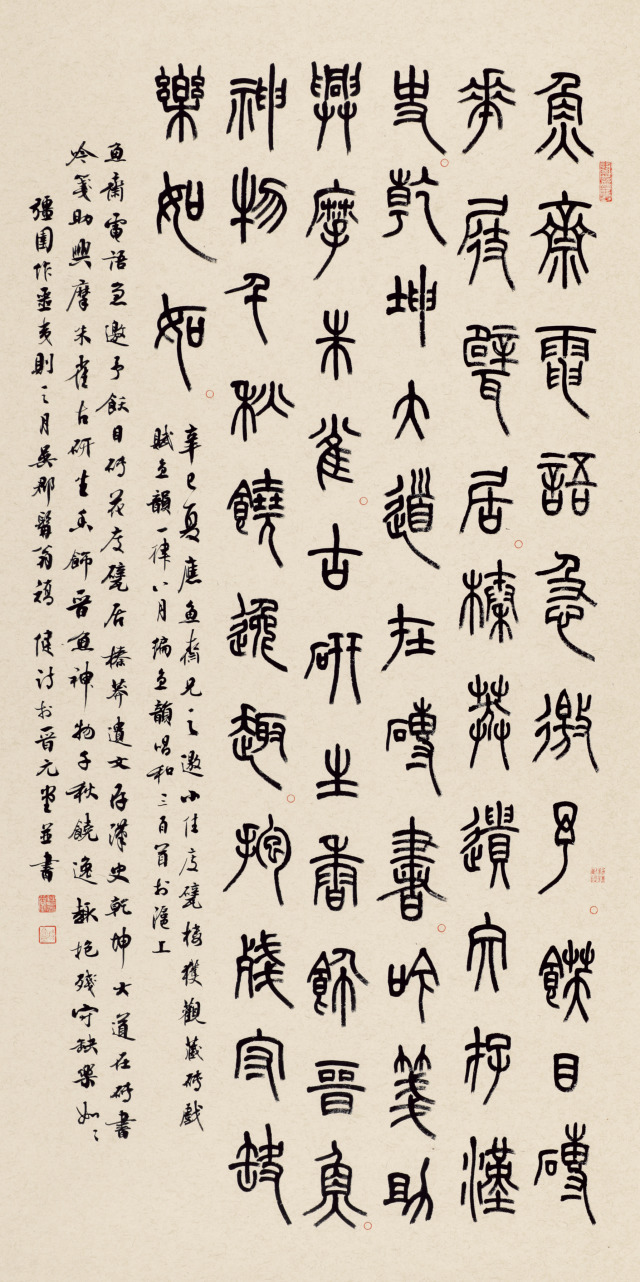 魚齋電語急邀予飫目磚
花庋甓居榛莽遺文存漢
史乾坤大道在磚書吟箋助
興摩朱雀古研生香飾晉魚
神物千秋饒逸趣抱殘守缺
樂如如
辛巳夏應魚齋兄之邀小住庋甓樓獲觀藏磚戲
賦魚韻一律八月編魚韻唱和三百首於滬上
魚齋電語急邀予飫目磚花庋甓居榛莽遺文存漢史乾坤大道在磚書
吟箋助興摩朱雀古研生香飾晉魚神物千秋饒逸趣抱殘守缺樂如〻
彊圉作噩夷則之月吳郡翁健詩於晉元堂並書